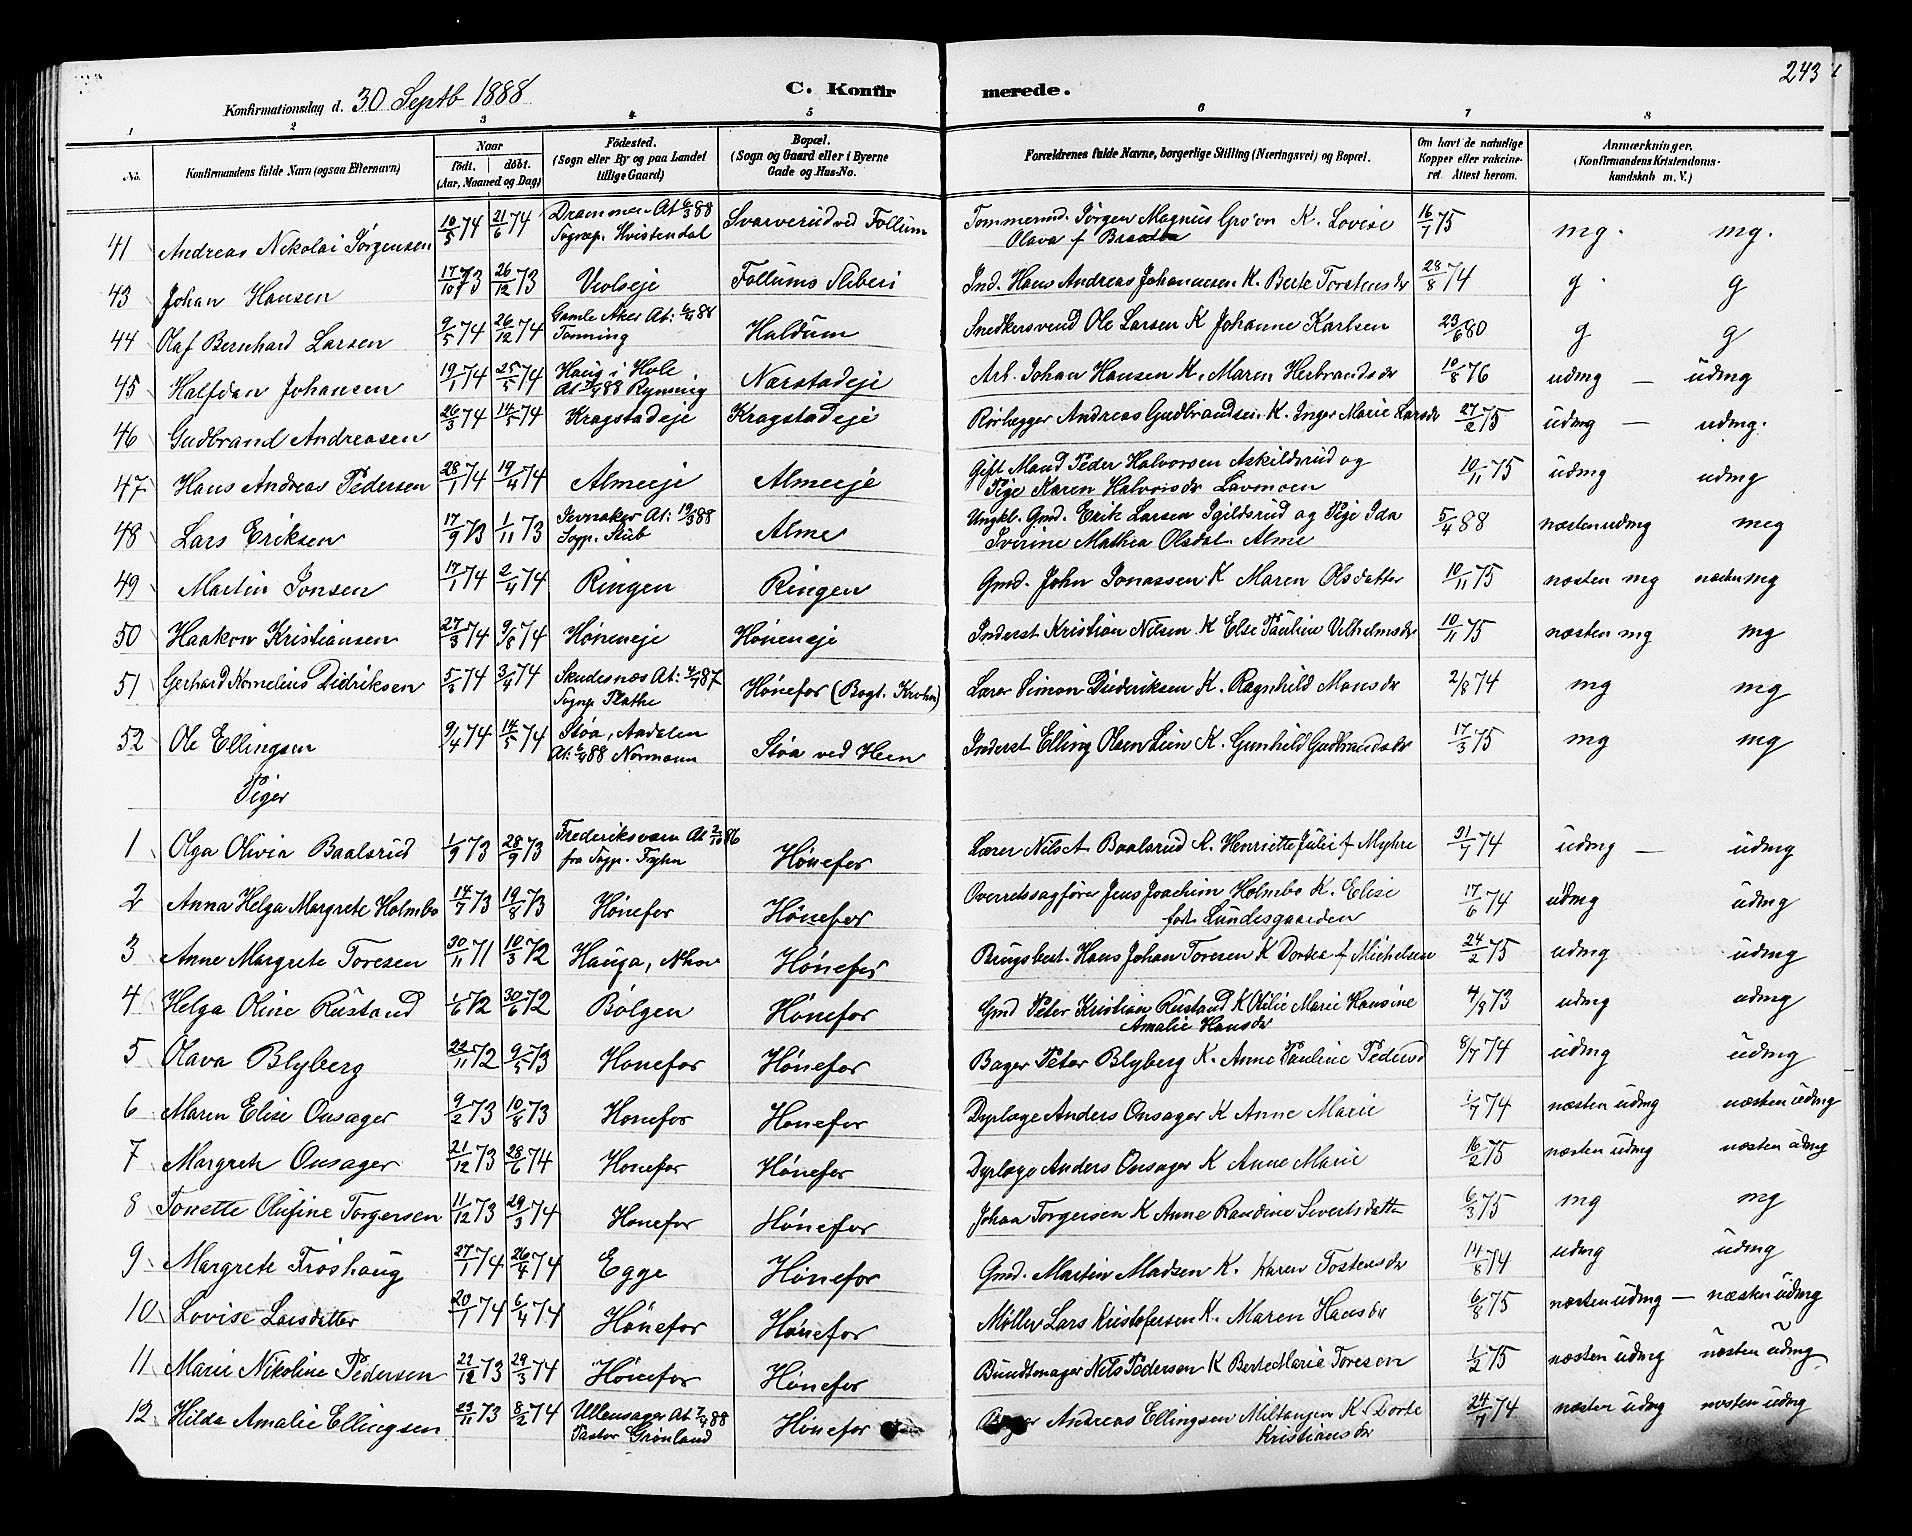 243
Konfirmationsdag d. 30 Septb 1888
C. Konfirmerede.
1 2 3 4 5 6 7 8
No.
Konfirmandens fulde Navn (ogsaa Efternavn)
Naar
födt. döbt.
(Aar, Maaned og Dag)
Födested.
(Sogn eller By og paa Landet
tillige Gaard)
Bopæl.
(Sogn og Gaard eller i Byerne
Gade og Hus-No.
Forældrenes fulde Navne, borgerlige Stilling (Næringsvei) og Bopæl.
Om havt de naturlige
Kopper eller vakcine-
ret. Attest herom.
Anmærkninger.
(Konfirmandens Kristendoms-
kundskab m. V.)
41 Andreas Nikolai Jørgensen 10/5 74 21/6 74 Drammen At 6/3 88 Sognep. Hvistendal Svarverud ved Follum Tømmermd. Jørgen Magnus K. Lovise Olava f 16/7 75 mg. mg.
43 Johan Hansen 17/10 73 26/12 73 Veolseje Follums Sliberi Ind. Hans Andreas Johannesen K. Berte Torstensdr 28/8 74 g. g
44 Olaf Bernhard Larsen 9/5 74 26/12 74 Gamle Aker At: 88 Tønning Haldum Snedkersvend Ole Larsen K Johanne Karlsen 23/6 80 g g
45 Halfdan Johansen 19/1 74 25/5 74 Haug i Hole At 88 Ryning Nærstadeje Arb. Johan Hansen K. Maren Herbrandsdr 10/8 76 udmg — udmg
46 Gudbrand Andreasen 26/3 74 14/5 74 Kragstadeje Kragstadeje Rørlægger Andreas Gudbrandsen K. Inger Marie Larsdr 27/2 75 udmg — udmg.
47 Hans Andreas Pedersen 28/1 74 19/4 74 Almeeje Almeeje Gift Mand Peder Halvorsen Askildsrud og Pige Karen Halvorsdr Lavmoen 10/11 75 udmg udmg
48 Lars Eriksen 17/9 73 1/11 73 Jevnaker At: 19/3 88 Sogp. Stub Alme Ungkl. Gmd. Erik Larsen Igildsrud og Pige Ida Sverine Mathea Olsdat. Alme 5/4 88 næsten udmg meg
49 Martin Jonsen 17/1 74 2/4 74 Ringen Ringen Gmd. John Jonassen K Maren Olsdatter 10/11 75 næsten mg næsten mg
50 Haakon Kristiansen 27/3 74 9/8 74 Høneneje Høneneje Inderst Kristian Nilsen K Else Pauline Vilhelmsdr 10/11 75 næsten mg mg
51 Gerhard Kornelius Didriksen 5/3 74 3/4 74 Skudesnæs At: 4/7 87 Sognp. Plathe Hønefos (Bogt. Krohn) Lærer Simon Diederiksen K. Ragnhild Monsdr 2/8 74 mg mg
52 Ole Ellingsen 9/4 74 14/5 74 Støa, Aadalen At: 6/4 88 Normann Støa ved Heen Inderst Elling Olsen Lein K. Gunhild Gudbrandsdr 17/3 75 mg mg
Piger
1 Olga Olivia Baalsrud 1/9 73 28/9 73 Frederiksværn At 2/10 86 fra Sogp. Fyhn Hønefos Lærer Nils A. Baalsrud K. Henriette Julie f Myhre 31/7 74 udmg — udmg
2 Anna Helga Margrete Holmbo 14/7 73 19/8 73 Hønefos Hønefos Overretssagfører Jens Joachim Holmbo K. Elise født Lundesgaarden 17/6 74 udmg udmg
3 Anne Margrete Toresen 30/11 71 10/3 72 Hauga, Nhov Hønefos Brugsbest. Hans Johan Toresen K Dortea f Michelsen 24/2 75 udmg udmg
4 Helga Oline Rustand 1/6 72 30/6 72 Bølgen Hønefos Gmd Peter Kristian Rustand K Otilie Marie Hansine Amalie Hansdr 4/9 73 udmg udmg
5 Olava Blyberg 22/11 72 9/5 73 Hønefos Hønefos Bager Peter Blyberg K. Anne Pauline Pedersd 8/7 74 udmg udmg
6 Maren Elise Onsager 9/2 73 10/8 73 Hønefos Hønefos Dyrlæge Anders Onsager K Anne Marie 1/7 74 næsten udmg næsten udmg
7 Margreth Onsager 21/12 73 28/6 74 Hønefos Hønefos Dyrlæge Anders Onsager K Anne Marie 16/2 75 næsten udmg næsten udmg
8 Tonette Olufine Torgersen 11/12 73 29/3 74 Hønefos Hønefos Johan Torgersen K Anne Randine Sivertsdatter 6/3 75 mg mg
9 Margrete Frøshaug 27/1 74 26/4 74 Egge Hønefos Gmd. Martin Madsen K. Karen Tostensdr 14/8 74 udmg udmg
10 Lovise Larsdatter 20/1 74 6/4 74 Hønefos Hønefos Møller Lars Kristofersen K. Maren Hansdr 6/8 75 næsten udmg — næsten udmg
11 Marie Nikoline Pedersen 22/12 73 29/3 74 Hønefos Hønefos Bundtmager Nils Pedersen K Berte Marie Toresen 1/2 75 næsten udmg næsten udmg
12 Hilda Amalie Ellingsen 23/11 73 8/2 74 Ullensager At 7/4 88 Pastor Grønland Hønefos Andreas Ellingsen Miltangen K. Dorte Kristiansdr 24/7 74 næsten udmg næsten udmg